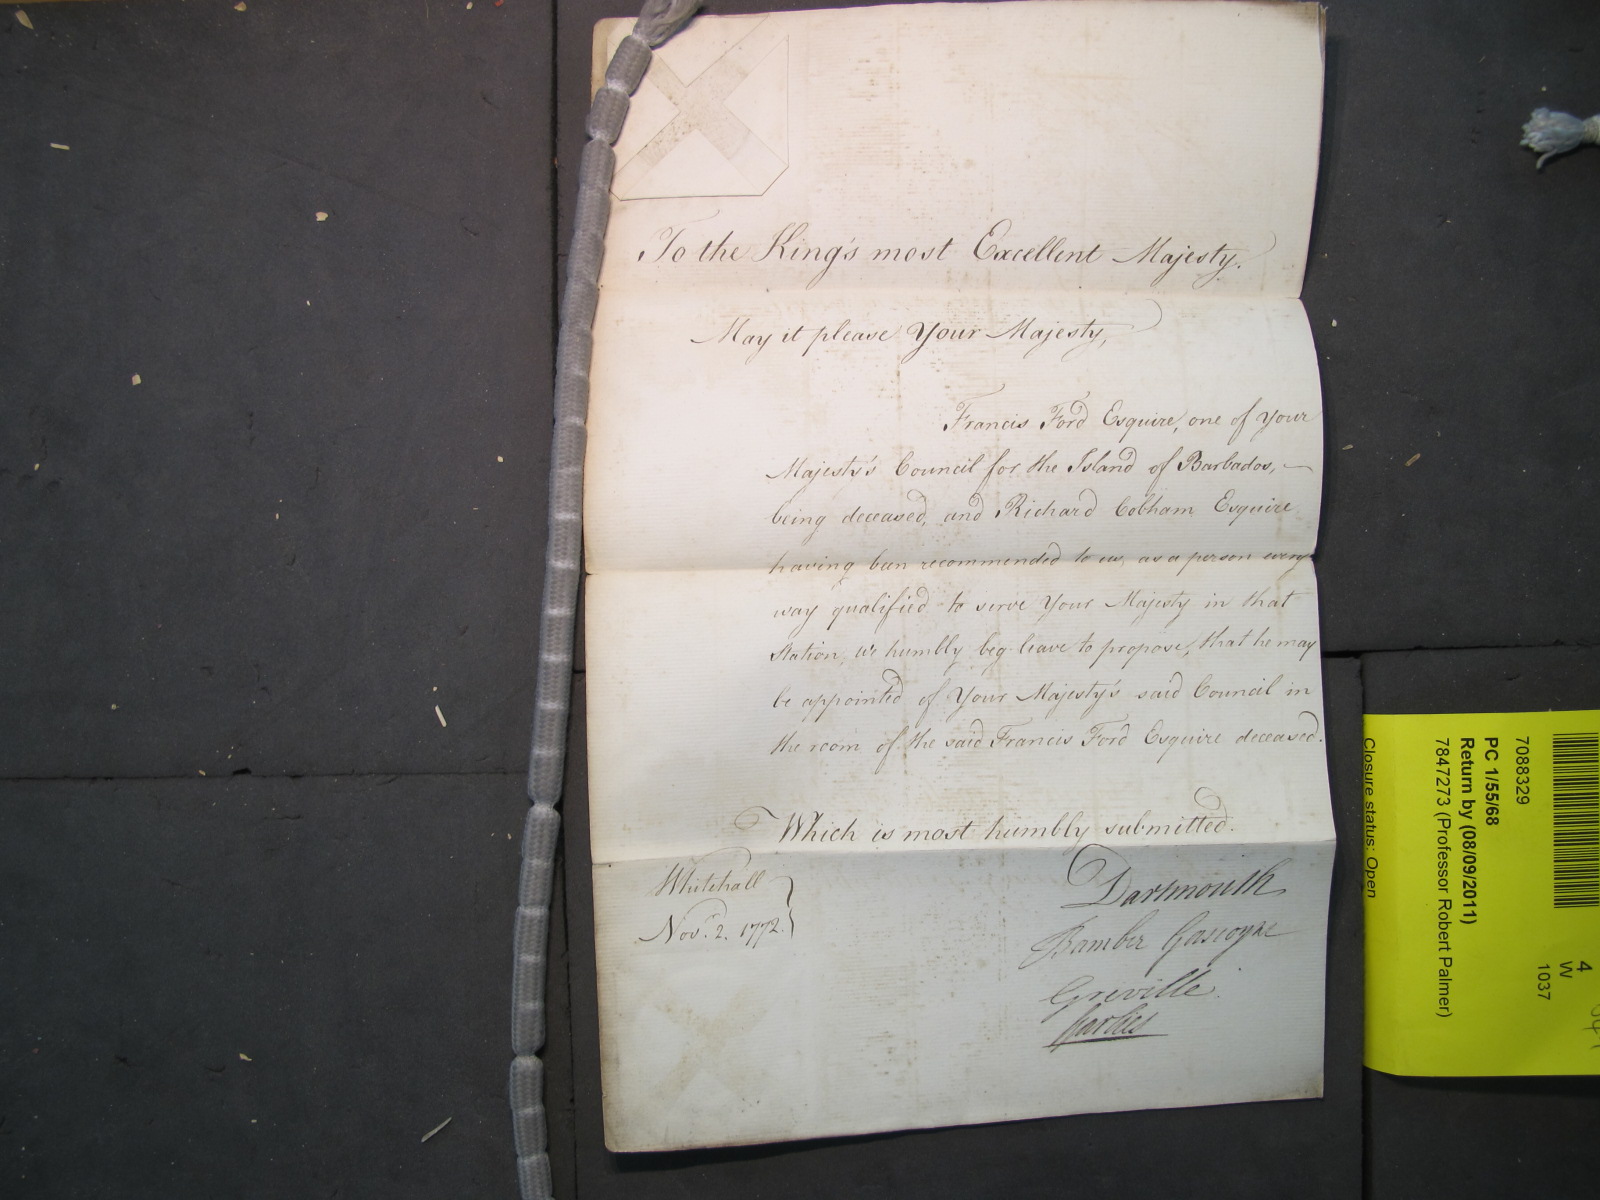 To the King's most Excellent Majesty.
May it please Your Majesty,
Francis Ford Esquire, one of Your
Majesty's Council for the Island of Barbados,
being deceased, and Richard Cobham Esquire
having been recommended to us, as a person every
way qualified to serve Your Majesty in that
Station, we humbly beg leave to propose, that he may
be appointed of Your Majesty's said Council in
the room of the said Francis Ford Esquire deceased.
Which is most humbly submitted.
Whitehall
Nov.r 2. 1772.
Dartmouth
Bamber Gascoyne
Greville
Garlies
7088329
PC 1/55/68
Return by (08/09/2011)
7847273 (Professor Robert Palmer)
Closure status: Open
4
W
1037